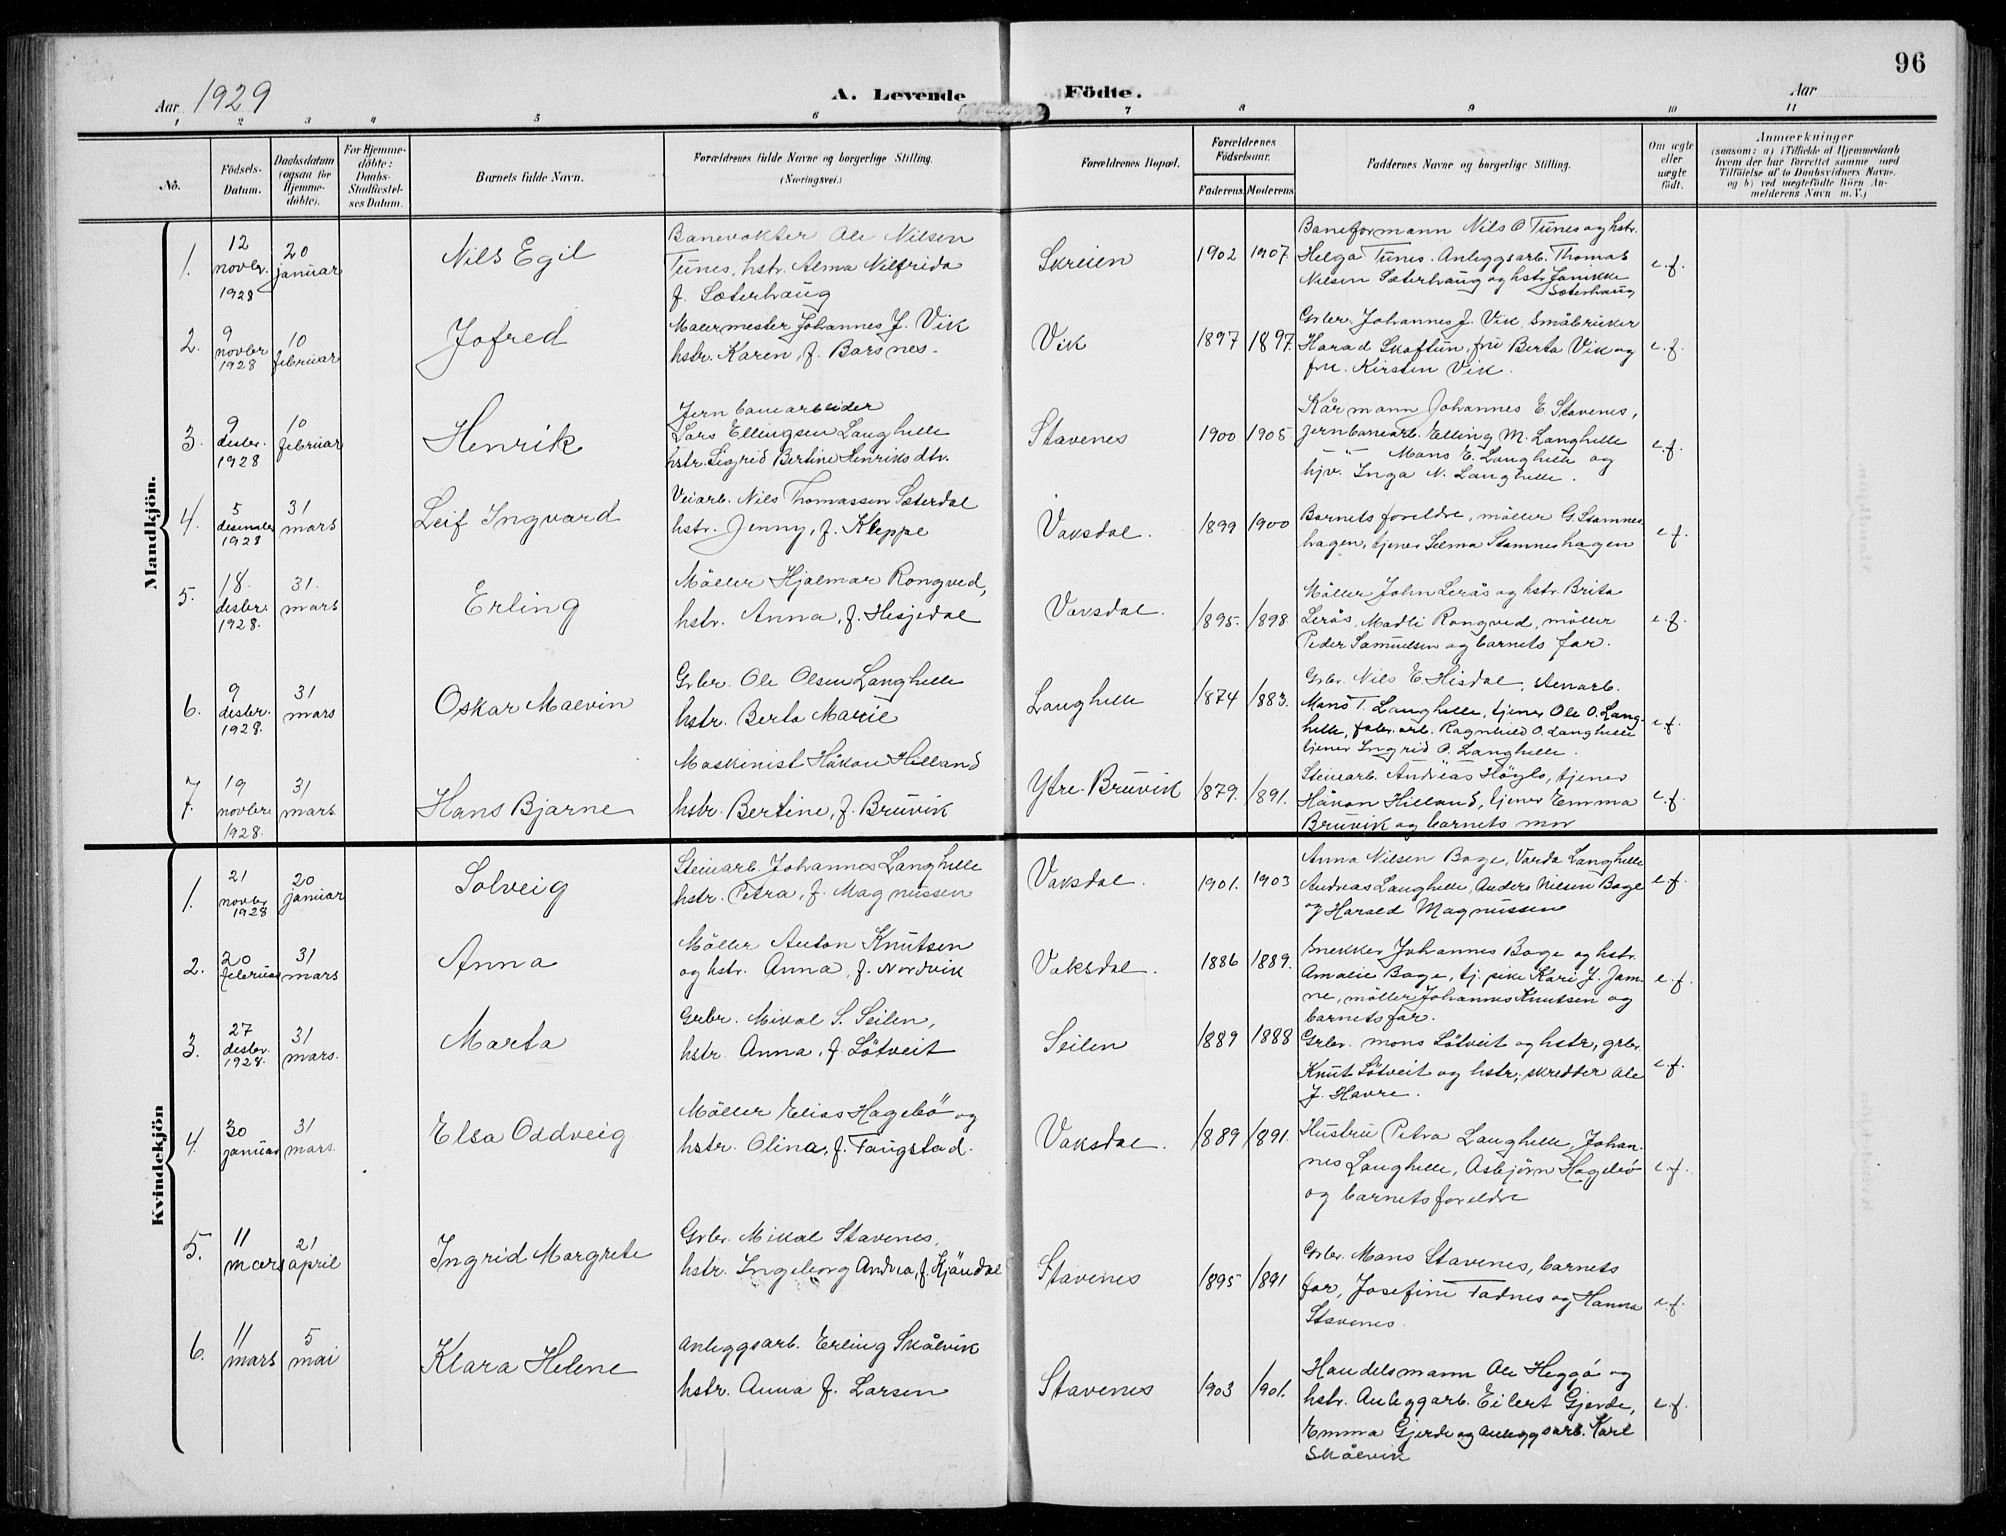 96
Aar 1929
A. Levende Födte.
Aar
1 2 3 4 5 6 7 8 9 10 11
No.
Födsels-Datum.
Daabsdatum (ogsaa for Hjemme-döbte).
For Hjemme-döbte: Daabs-Stadfæstel-ses Datum.
Barnets fulde Navn.
Forældrenes fulde Navne og borgerlige Stilling. (Næringsvei.)
Forældrenes Bopæl.
Forældrenes Födselsaar.
Faderens. Moderens.
Faddernes Navne og borgerlige Stilling.
Om ægte eller uægte födt.
Anmærkninger
(saasom: a) i Tilfælde af Hjemmedaab
hvem der har forrettet samme, med
Tilföielse af to Daabsvidners Navne,
og b) ved uægtefödte Börn An-
melderens Navn m. V.)
Mandkjön.
1. 12 novbr. 1928 20 januar Nils Egil
Banevokter Ole Nilsen
Tunes, hstr. Alma Nilfrida
f. Sæterhaug
Skreien 1902 1907.
Baneformann Nils O Tunes og hstr.
Helga Tunes. Anleggsarb. Thomas
Nilsen Sæterhaug og hstr Janikke
Sæterhaug
e.f.
2. 9 novbr 1928 10 februar Jofred
Malermester Johannes J. Vik
hstr. Karen, f. Barsnes.
Vik 1897 1897.
Grbr. Johannes J. Vik, småbruker
Harad Skaftun, fru Berta Vik og
frk. Kirsten Vik.
e.f.
3. 9 desbr. 1928 10 februar Henrik
Jernbanearbeider
Lars Ellingsen Langhelle
hstr. Sigrid Bertine Henriksdtr.
Stavenes 1900 1905
Kårmann Johannes E. Stavenes,
jernbanearb. Elling M. Langhelle
—"— Mons E. Langhelle og
hjv. Inga N. Langhelle.
e.f.
4. 5 desember 1928 31 mars Leif Ingvard
Veiarb. Nils Thomassen Sæterdal
hstr. Jenny, f. Kleppe
Vaksdal. 1899 1900
Barnets foreldre, möller G. Stamnes
hagen, tjener Selma Stamneshagen
e.f.
5. 18. desbr. 1928. 31. mars Erling
Möller Hjalmar Rongved,
hstr. Anna, f. Hisjedal
Vaksdal. 1895. 1898.
Möller John Lerås og hstr. Brita
Lerås, Madli Rongved, möller
Peder Samuelsen og barnets far.
e.f.
6. 9 desbr. 1928. 31 mars Oskar Malvin
Grbr. Ole Olsen Langhelle
hstr. Berta Marie
Langhelle 1874 1883.
Grbr. Nils E. Hisdal, stenarb.
Mons T. Langhelle, tjener Ole O. Lang-
helle, fabr. arb. Ragnhild O. Langhelle
tjener Ingrid O. Langhelle.
e.f.
7. 19 novbr 1928. 31 mars Hans Bjarne
Maskinist Håkon Helland
hstr. Bertine, f. Bruvik
Ytre Bruvik 1879. 1891.
Steinarb. Andreas Höglo, tjener
Håkon Helland, tjener Emma
Bruvik og barnets mor
e.f.
Kvindekjön
1. 21 novbr 1928 20 januar Solveig
Steinarb. Johannes Langhelle
hstr. Petra, f. Magnussen
Vaksdal. 1901. 1903
Anna Nilsen Boge, Varda Langhelle
Andreas Langhelle, Anders Nilsen Boge
og Harald Magnussen
e.f.
2. 20 februar 31 mars Anna
Möller Anton Knutsen
og hstr. Anna, f. Nordvik
Vaksdal. 1886 1889.
Snekker Johannes Boge og hstr.
Amalie Boge, tj. pike Kari J. Jam-
ne, möller Johannes Knutsen og
barnets far.
e.f.
3. 27 desbr. 1928. 31 mars. Marta
Grbr. Mikal S. Seilen,
hstr. Anna, f. Lötveit
Seilen 1889 1888
Grbr. Mons Lötveit og hstr, grbr.
Knut Lötveit og hstr, skredder Ole
J. Havre.
e.f.
4. 30 januar 31 mars. Elsa Oddveig
Möller Elias Hagebö og
hstr. Olina, f. Faugstad.
Vaksdal. 1889 1891.
Hustru Petra Langhelle, Johan-
nes Langhelle, Asbjörn Hagebö
og barnets foreldre
e.f.
5. 11 mars 21 april Ingrid Margrete
Grbr. Mikal Stavenes,
hstr. Ingeborg Andrea, f. Kjöndal
Stavenes 1895 1891
Grbr. Mons Stavenes, barnets
far, Josefine Tadnes og Hanna
Stavenes.
e.f.
6. 11 mars 5 mai Klara Helene
Anleggsarb. Erling Skålvik
hstr. Anna f. Larsen
Stavenes 1903 1901.
Handelsmann Ole Heggö og
hstr. Anleggarb. Eilert Gjerde,
Emma Gjerde og anleggsarb. Karl
Skålvik
e.f.